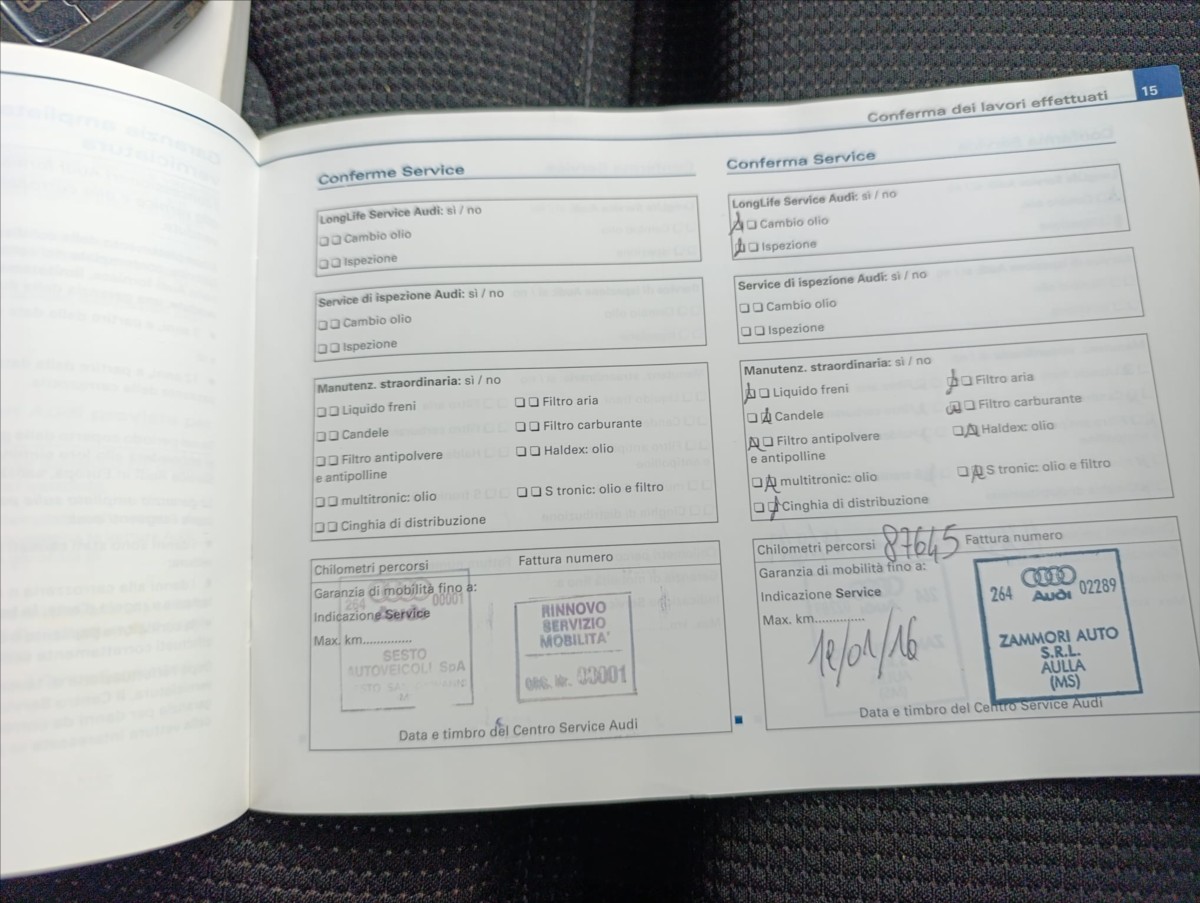 Conferma dei lavori effettuati 15
Conferme Service
LongLife Service Audi: sì / no
Cambio olio
Ispezione
Service di ispezione Audi: sì / no
Cambio olio
Ispezione
Manutenz. straordinaria: sì / no
Liquido freni
Filtro aria
Candele
Filtro carburante
Filtro antipolvere
e antipolline
Haldex: olio
multitronic: olio
S tronic: olio e filtro
Cinghia di distribuzione
Chilometri percorsi
Fattura numero
Garanzia di mobilità fino a:
Indicazione Service
Max. km.............
264 00001
SESTO
AUTOVEICOLI SpA
RINNOVO
SERVIZIO
MOBILITA'
ORG. Nr. 00001
Data e timbro del Centro Service Audi
Conferma Service
LongLife Service Audi: sì / no
Cambio olio
Ispezione
Service di ispezione Audi: sì / no
Cambio olio
Ispezione
Manutenz. straordinaria: sì / no
Liquido freni
Filtro aria
Candele
Filtro carburante
Filtro antipolvere
e antipolline
Haldex: olio
multitronic: olio
S tronic: olio e filtro
Cinghia di distribuzione
Chilometri percorsi 87645
Fattura numero
Garanzia di mobilità fino a:
Indicazione Service
Max. km.............
/01/16
264 Audi 02289
ZAMMORI AUTO
S.R.L.
AULLA
(MS)
Data e timbro del Centro Service Audi